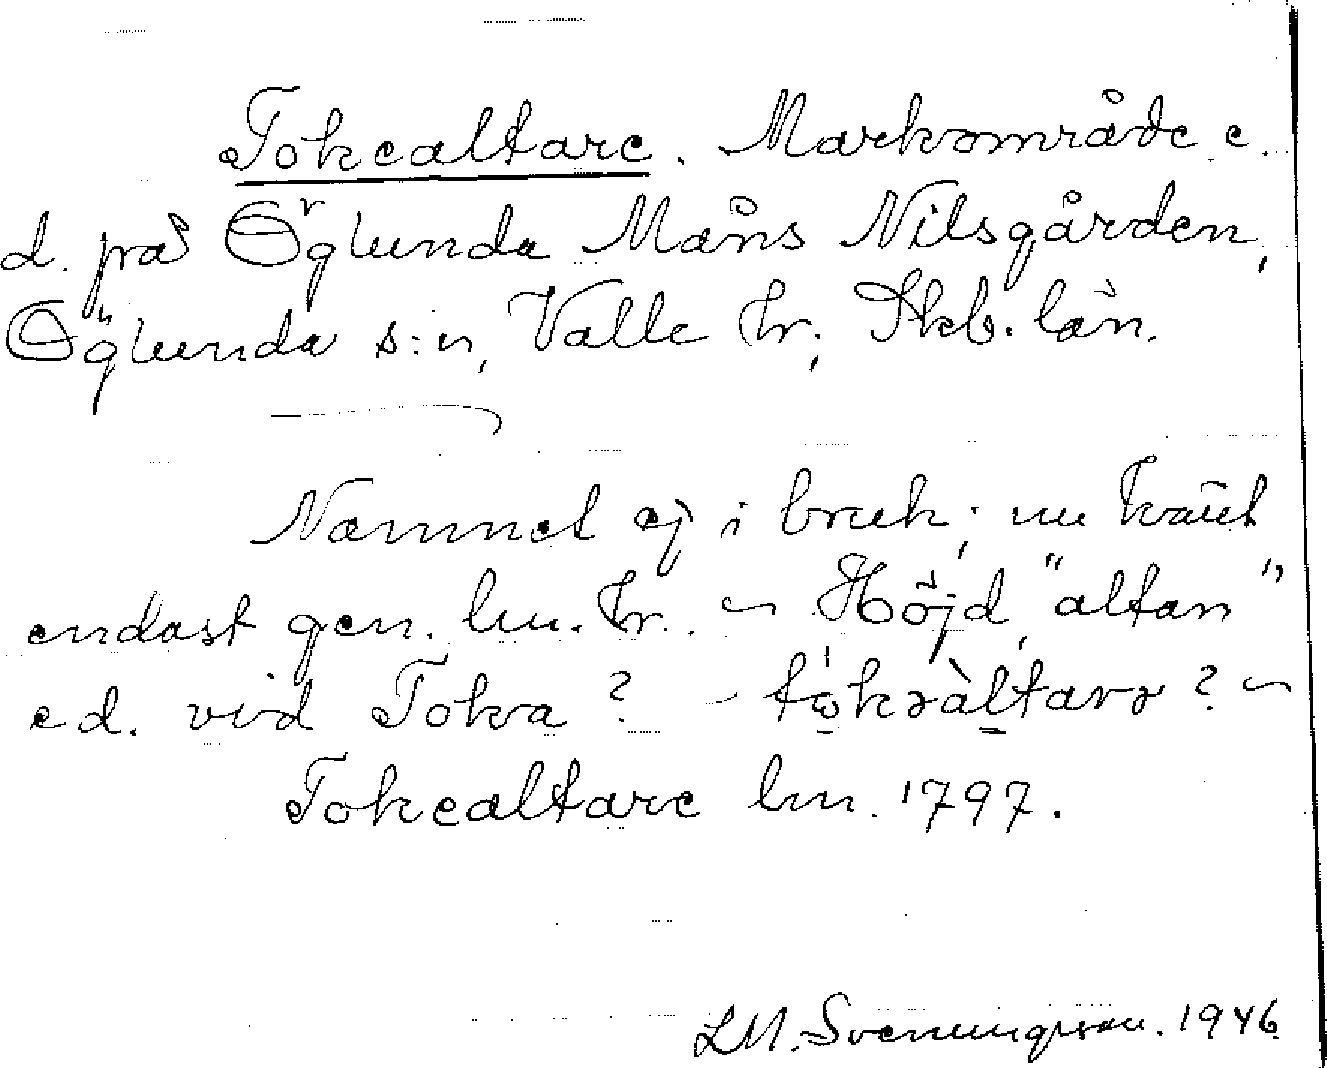 Tokealtare. Markområde e.
d. på Öglunda Måns Nilsgården,
Öglunda s:n, Valle hr, Skb. län.
Namnet ej i bruk; nu känt
endast gen. lm. hr. ~ Höjd, "altan"
ed. vid Toka? - tokəàltarə? ~
Tokealtare lm. 1797.
LM. Svenungsson. 1946